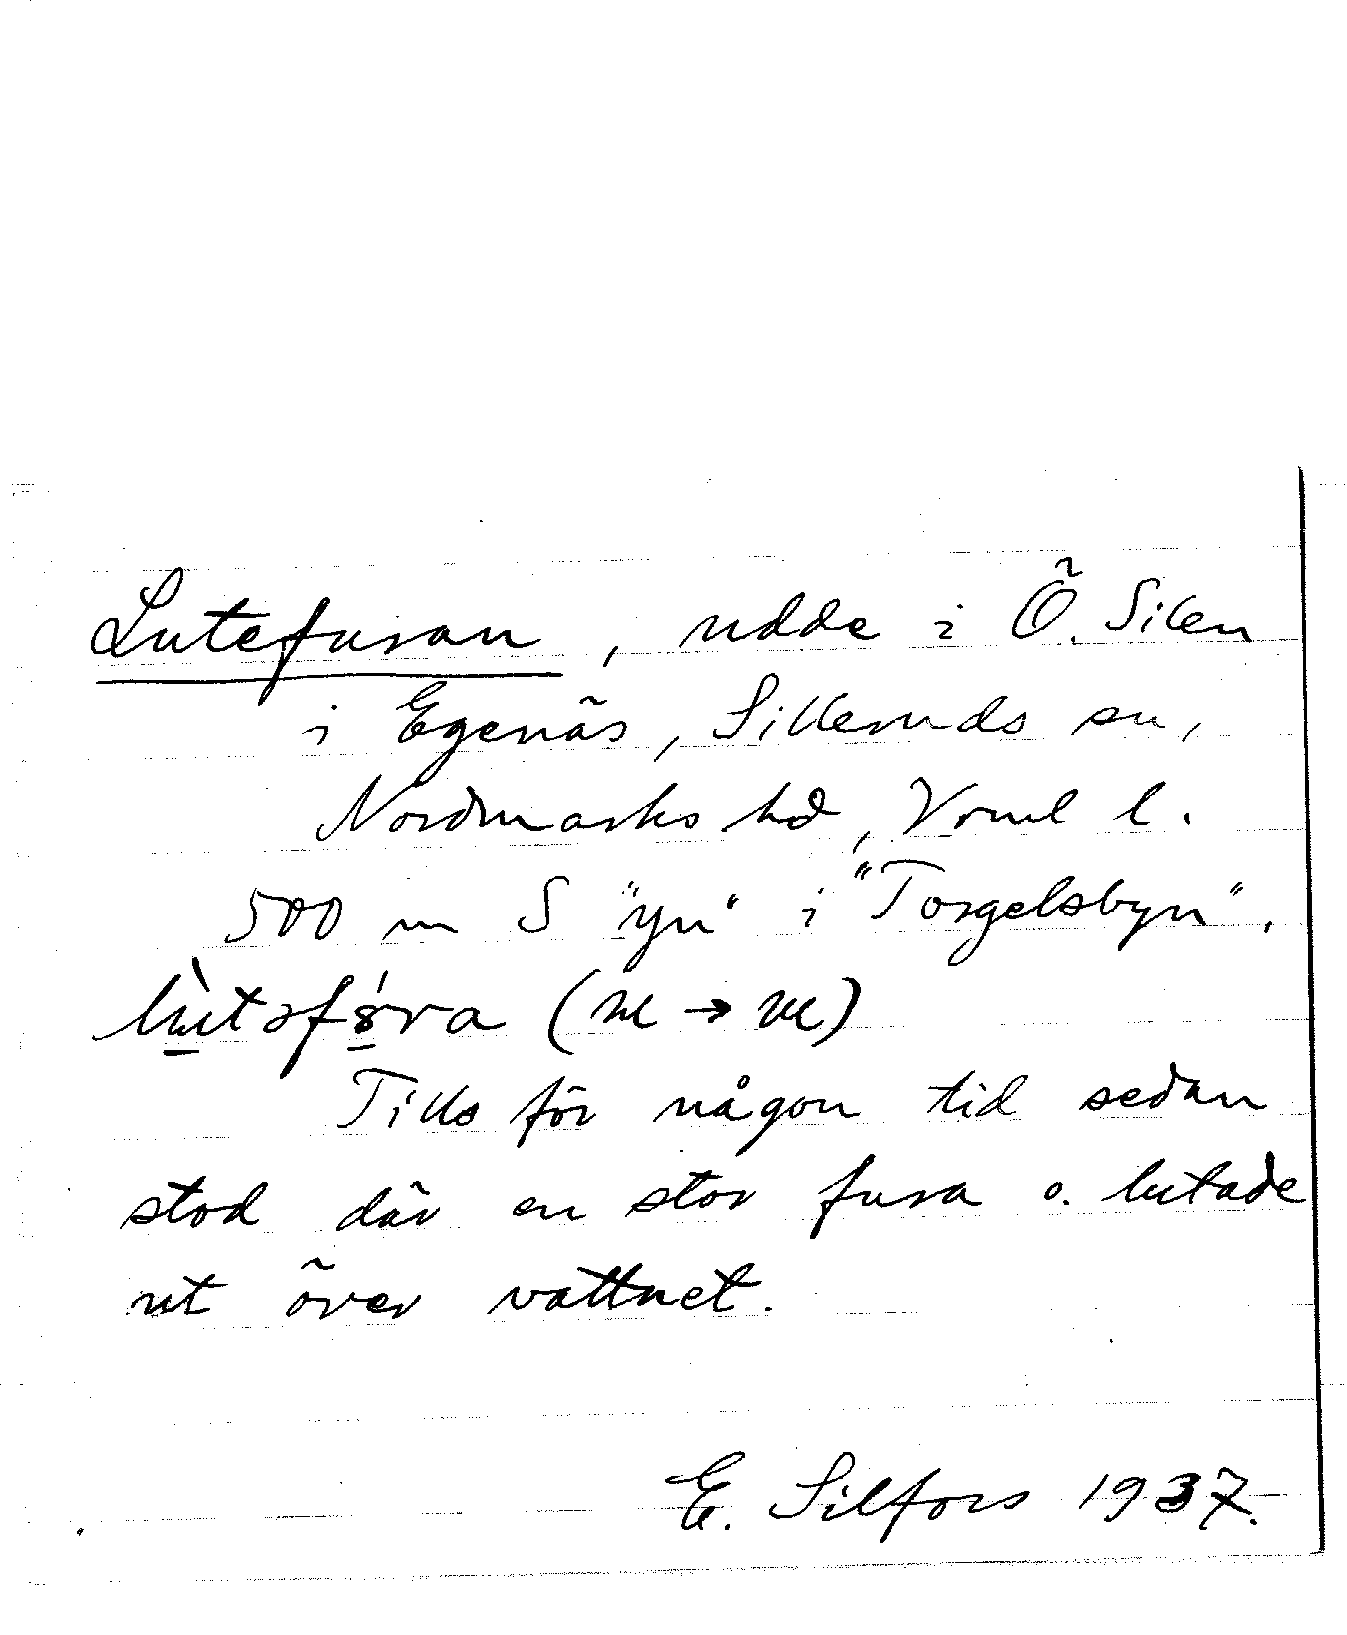 Lutefuran, udde i Ö. Silen
i Egenäs, Silleruds sn,
Nordmarks hd, Vrml l.
500 m S "yn" i "Torgelsbyn".
(m → m)
Tills för någon tid sedan
stod där en stor fura o. lutade
ut över vattnet.
E. Silfors 1937.